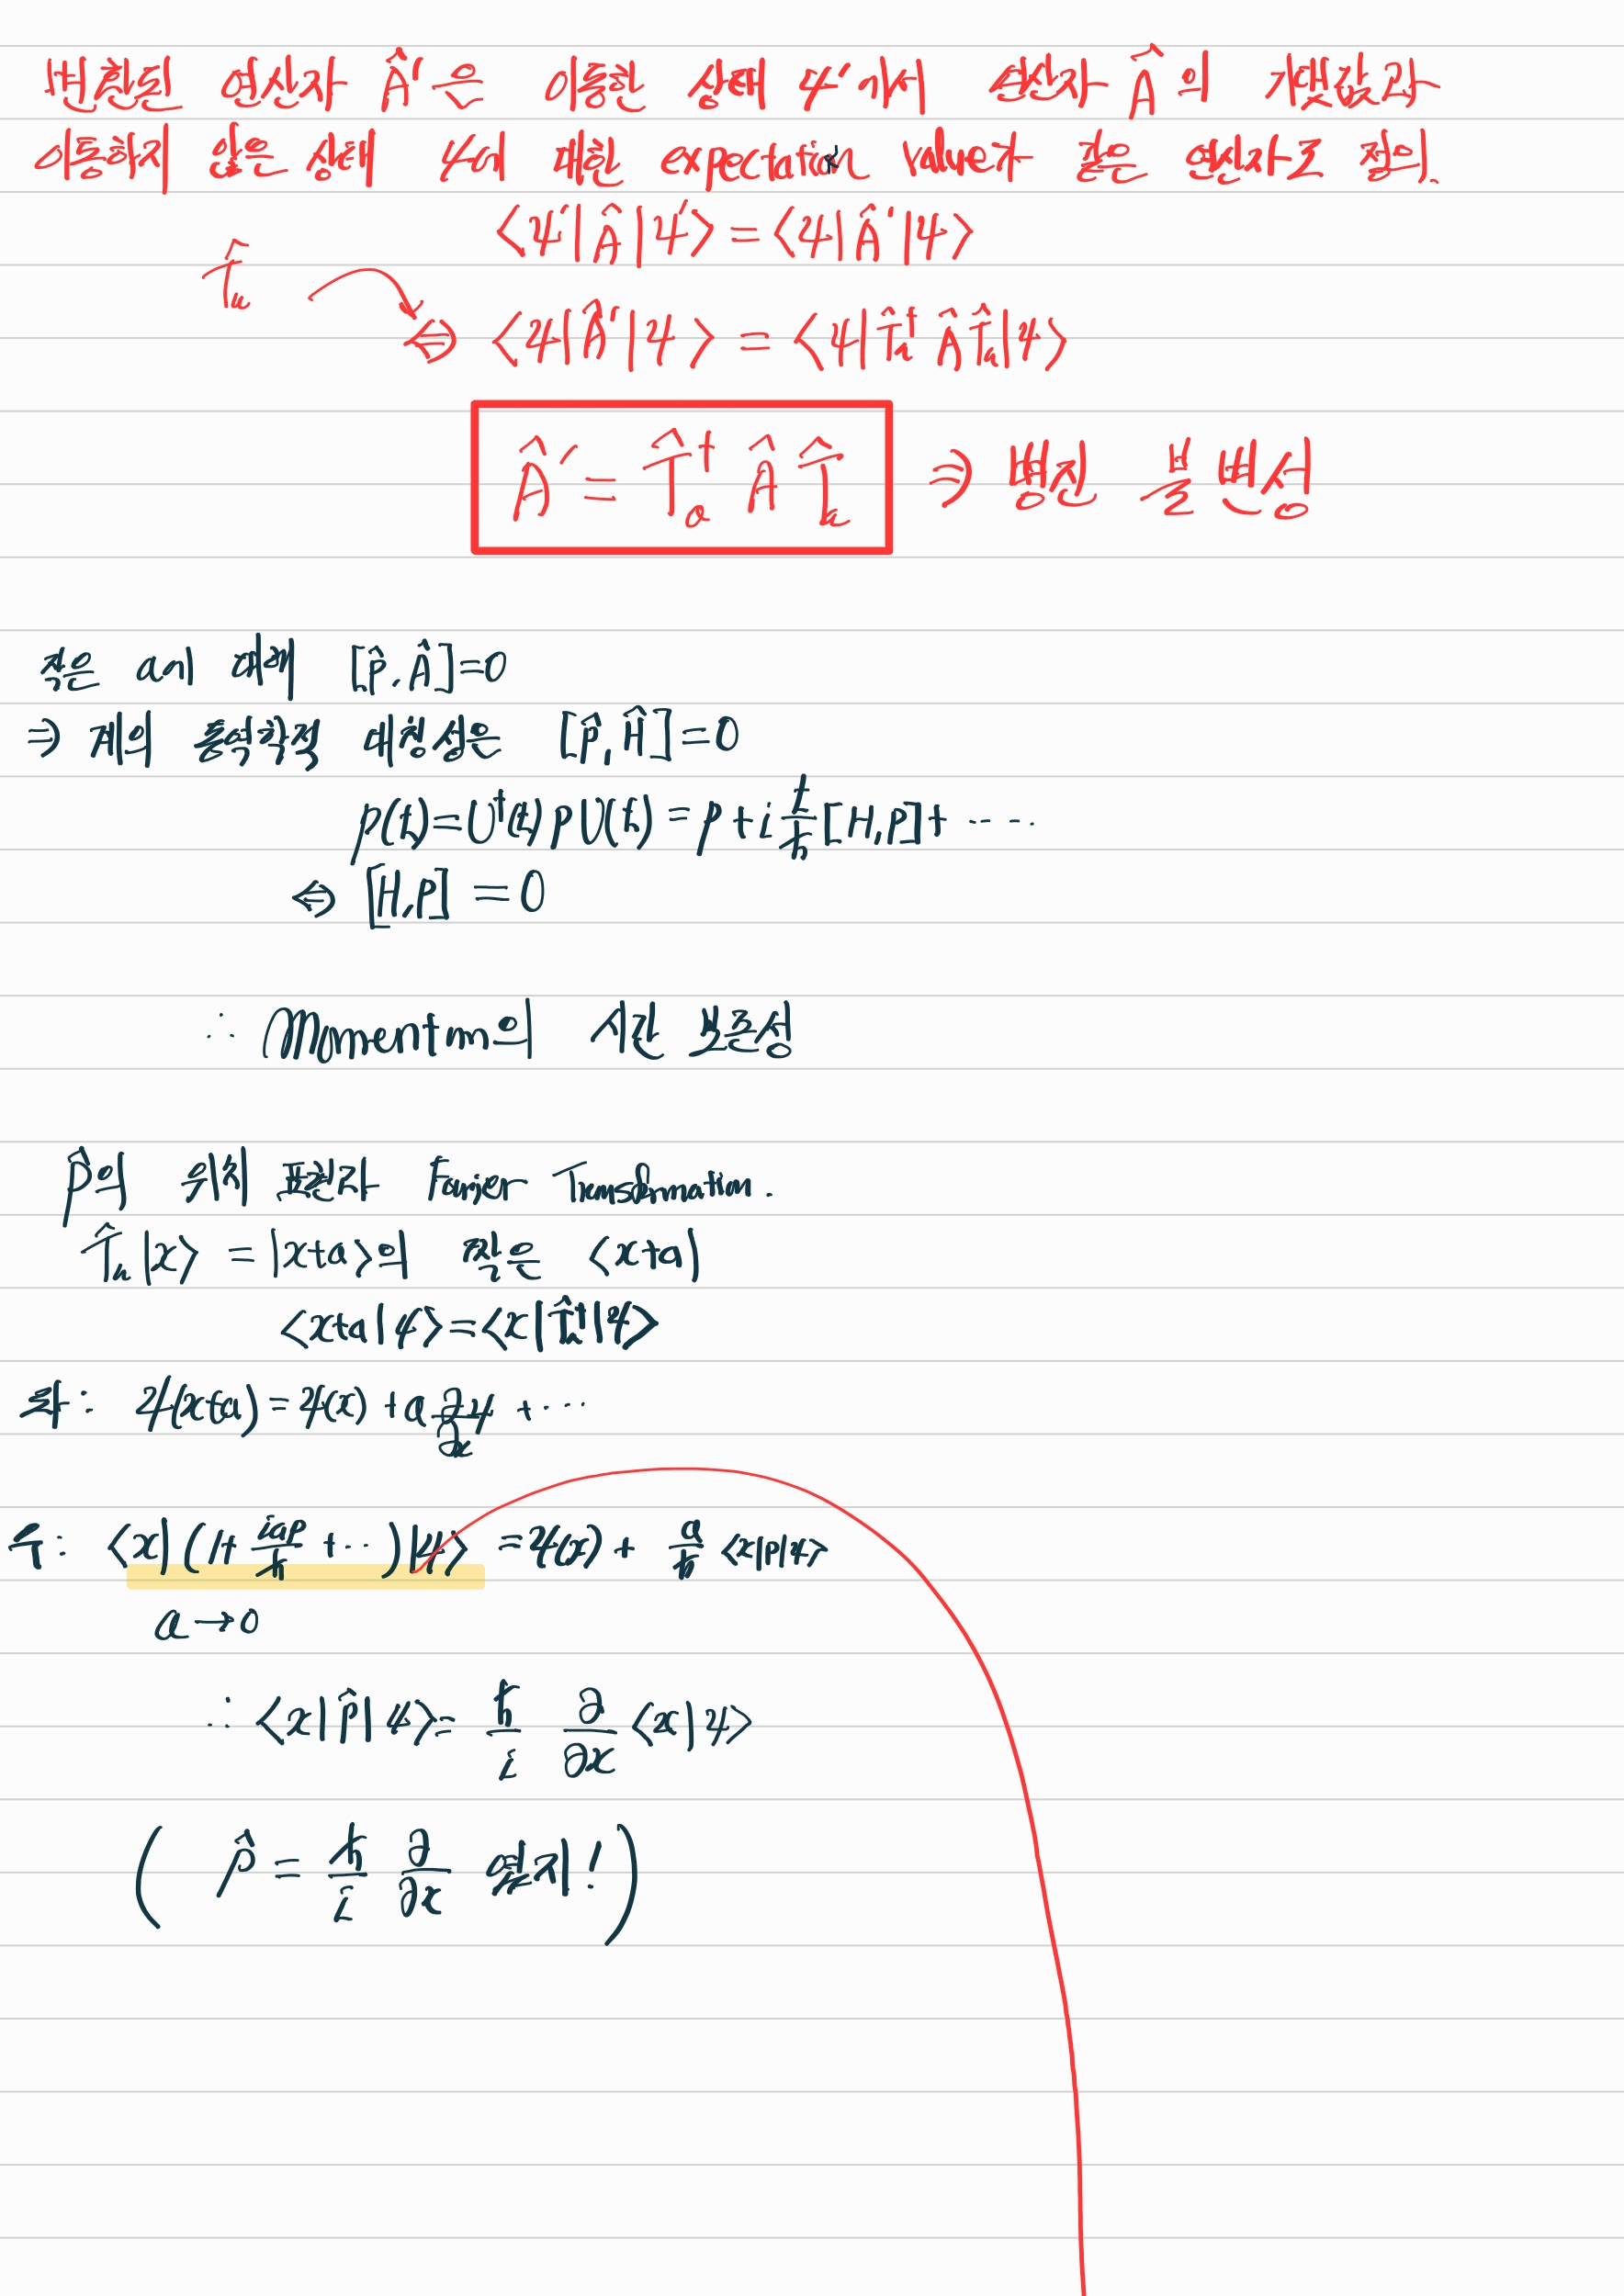 변환된 연산자 Â'은 이동한 상태 ψ'에서 연산자 Â의 기댓값과
이동하지 않은 상태 ψ에 대한 expectation value가 같은 연산자로 정의.
⟨ψ'|Â|ψ'⟩ = ⟨ψ|Â'|ψ⟩
T̂ₐ ⇔ ⟨ψ|Â'|ψ⟩ = ⟨ψ|T̂ₐ† Â T̂ₐ|ψ⟩
Â' = T̂ₐ† Â T̂ₐ ⇒ 병진 불변성
작은 a에 대해 [p̂, Â]=0
⇒ 계의 동역학적 대칭성은 [p̂, Ĥ]=0
p(t)=U†(t) p U(t) = p + i t/ħ [H,P]+ ····
⇔ [H,P] = 0
∴ Momentum의 시간 보존성
p̂의 위치 표현과 Fourier Transformation.
T̂ₐ|x⟩ = |x+a⟩의 짝은 ⟨x+a|
⟨x+a|ψ⟩=⟨x|T̂ₐ†|ψ⟩
좌: ψ(x+a) = ψ(x) + a ∂ψ/∂x + ···
우: ⟨x|(1+ iap/ħ + ··)|ψ⟩ = ψ(x) + a/ħ ⟨x|p|ψ⟩
a → 0
∴ ⟨x|p̂|ψ⟩= ħ/i ∂/∂x ⟨x|ψ⟩
( p̂ = ħ/i ∂/∂x 왠지! )